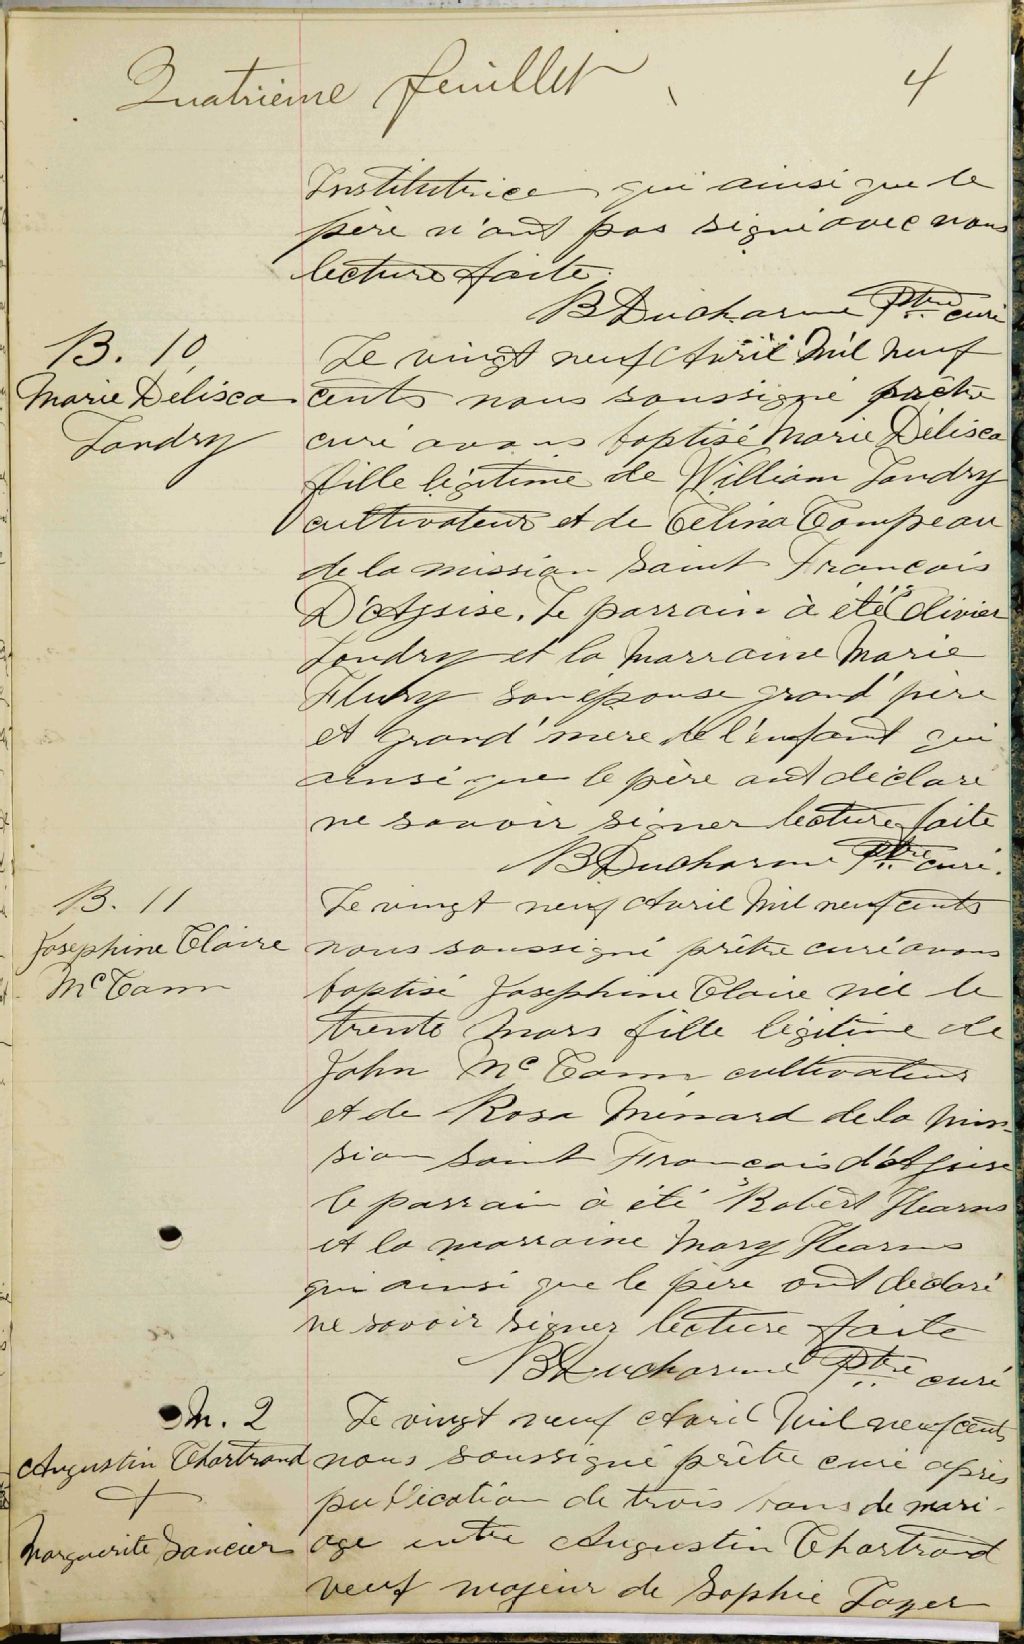 Quatrième feuillet
4
Institutrice qui ainsi que le
père n'ont pas signé avec nous
lecture faite.
B Ducharme Ptre curé
B. 10
Marie Delisca
Landry
Le vingt neuf Avril Mil neuf
cents nous soussigné prêtre
curé avons baptisé Marie Délisca
fille légitime de William Landry
cultivateur et de Célina Campeau
de la mission Saint François
D'Assise. Le parrain à été Olivier
Landry et la Marraine Marie
Flury son épouse grand' père
et grand' mere de l'enfant qui
ainsi que le père ont déclaré
ne savoir signer lecture faite
B Ducharme Ptre curé.
B. 11
Josephine Claire
McCann
Le vingt neuf Avril Mil neuf cents
nous soussigné prêtre curé avons
baptisé Josephine Claire née le
trente Mars fille légitime de
John McCann cultivateur
et de Rosa Ménard de la Mis-
sion Saint François d'Assise
le parrain à été Robert Hearns
et la marraine Mary Hearns
qui ainsi que le père ont déclaré
ne savoir signer lecture faite
B Ducharme Ptre curé
M. 2
Augustin Chartrand
+
Marguerite Saucier
Le vingt neuf Avril Mil neuf cents
nous soussigné prêtre curé après
publication de trois bans de mari-
age entre Augustin Chartrand
veuf majeur de Sophie